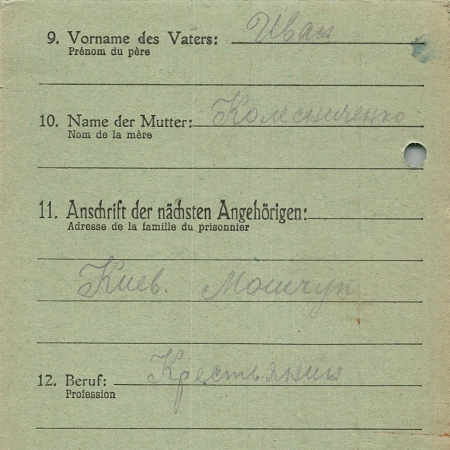 9. Vorname des Vaters: Иван
Prénom du père
10. Name der Mutter: Колесниченко
Nom de la mère
11. Anschrift der nächsten Angehörigen:
Adresse de la famille du prisonnier
Киев.
12. Beruf: Крестьянин
Profession